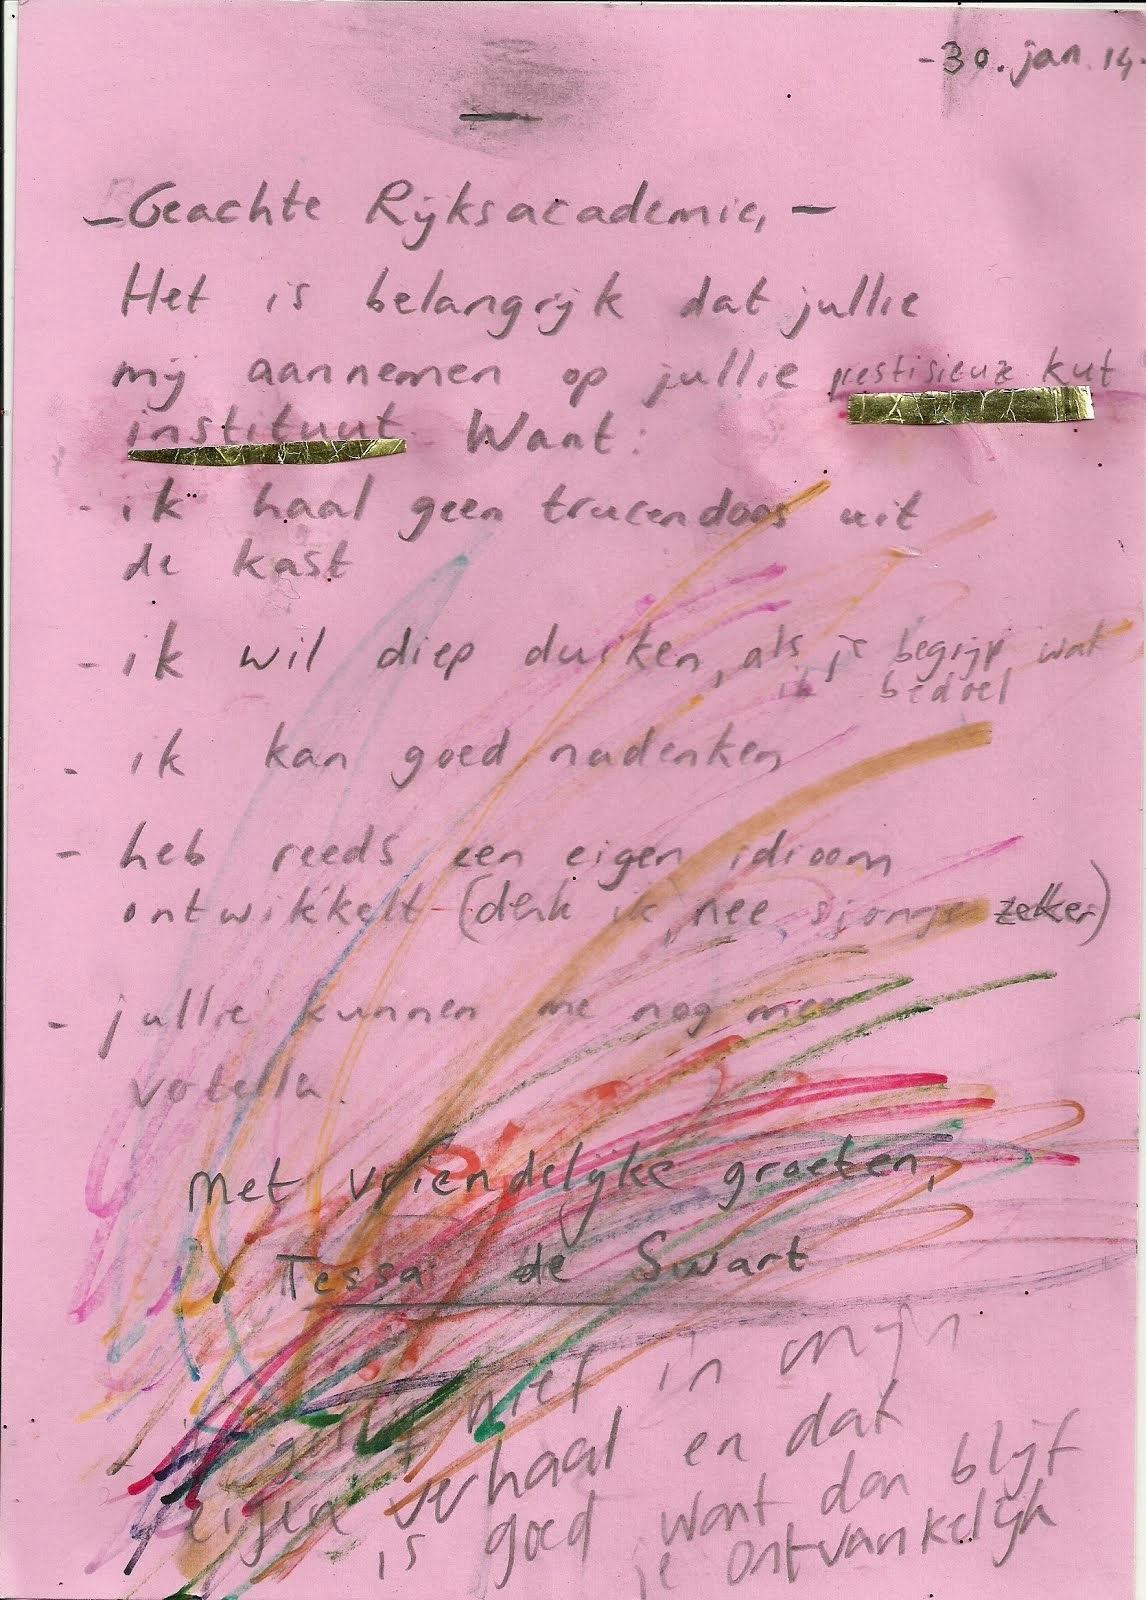 -30. jan. 14-
- Geachte Rijksacademie, -
Het is belangrijk dat jullie
mij aannemen op jullie prestisieuz kut
instituut Want:
- ik haal geen trucendoos uit
de kast
- ik wil diep duiken, als je begrijp wat
ik bedoel
- ik kan goed nadenken
- heb reeds een eigen idioom
ontwikkelt (denk ik, nee sjonge zeker)
- jullie kunnen me nog meer
votella.
Met vriendelijke groeten,
Tessa de Swart
niet in mijn
eigen verhaal en dat
is goed want dan blijf
je ontvankelijk